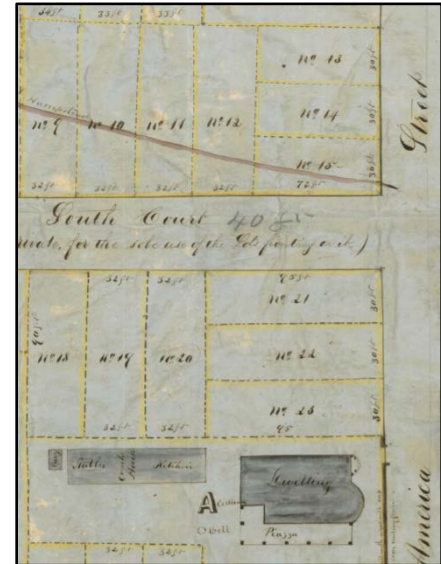 34ft 33ft 33ft
No 13 30ft
Hampstead
No 9 No 10 No 11 No 12 No 14 30ft
No 15 30ft
32ft 32ft 32ft 32ft 72ft
Street
South Court 40 ft
Private, for the sole use of the Lots fronting on it.)
32ft 32ft 95ft
No 21 30ft
90ft
No 18 No 19 No 20 No 22 30ft
No 23 30ft
32ft 32ft 95
Stable Coach House Kitchen Dwelling
A
Cistern
O Well Piazza
America
32ft 32ft